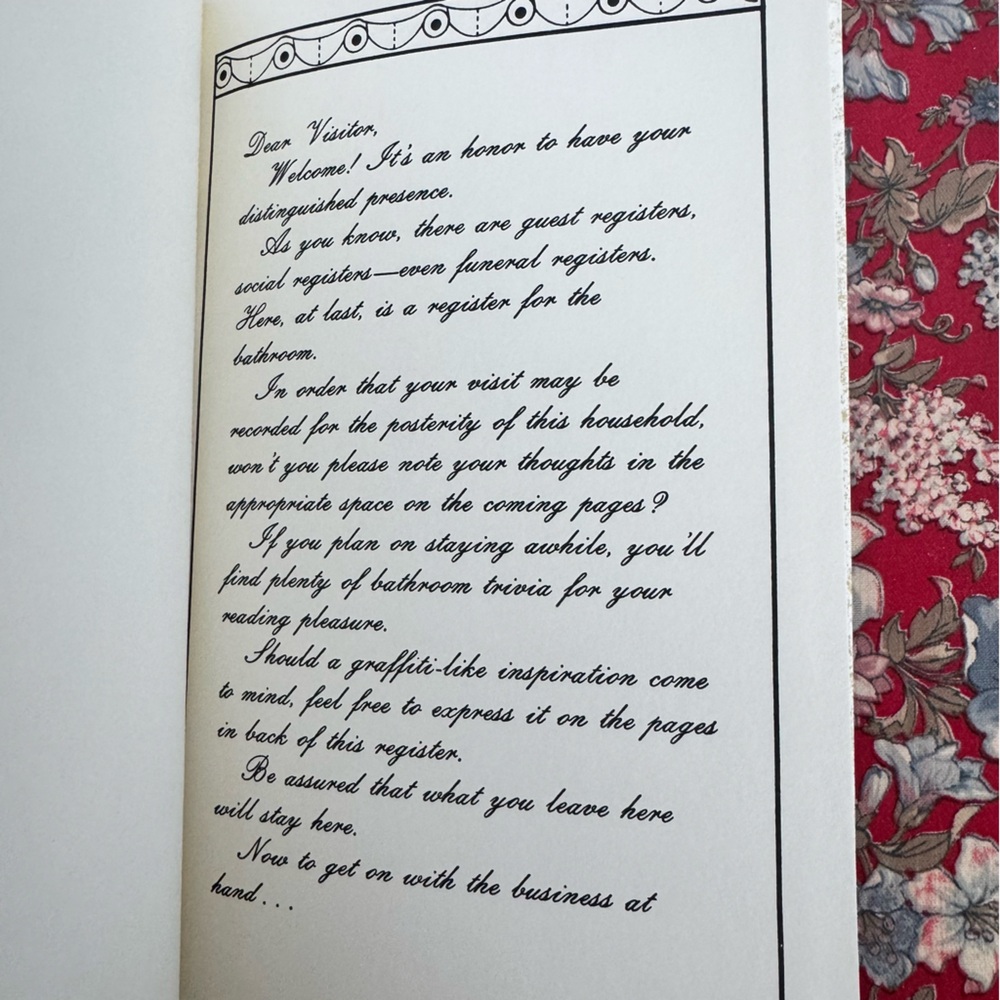 Dear Visitor,
Welcome! It's an honor to have your
distinguished presence.
As you know, there are guest registers,
social registers—even funeral registers.
Here, at last, is a register for the
bathroom.
In order that your visit may be
recorded for the posterity of this household,
won't you please note your thoughts in the
appropriate space on the coming pages?
If you plan on staying awhile, you'll
find plenty of bathroom trivia for your
reading pleasure.
Should a graffiti-like inspiration come
to mind, feel free to express it on the pages
in back of this register.
Be assured that what you leave here
will stay here.
Now to get on with the business at
hand...